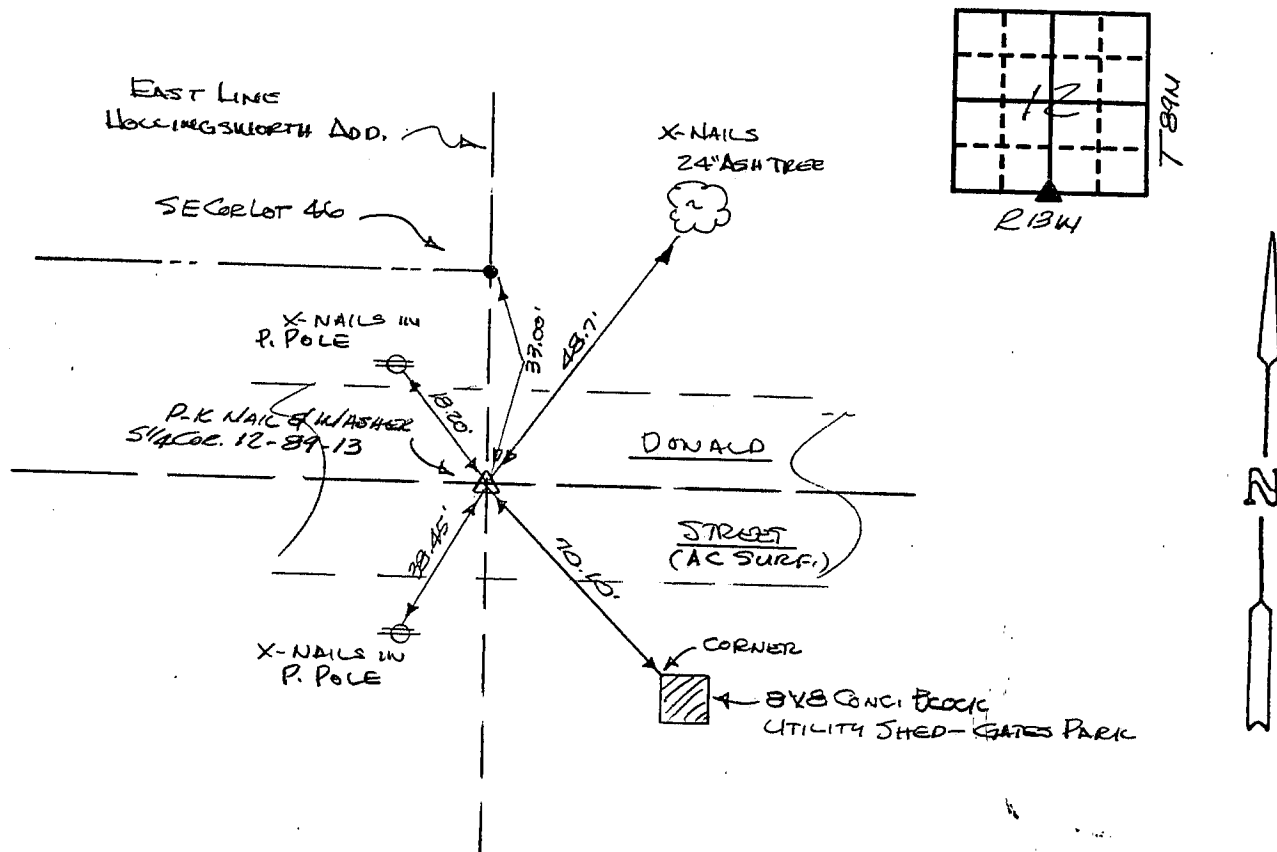 EAST LINE
HOLLINGSWORTH ADD.
SE COR LOT 46
X-NAILS
24" ASH TREE
12
T 89N
R 13W
X-NAILS IN
P. POLE
33.00'
48.7'
18.20'
P-K NAIL & WASHER
S 1/4 COR. 12-89-13
DONALD
STREET
(AC SURF.)
N
38.45'
70.10'
X-NAILS IN
P. POLE
CORNER
8X8 CONC. BLOCK
UTILITY SHED - GATES PARK